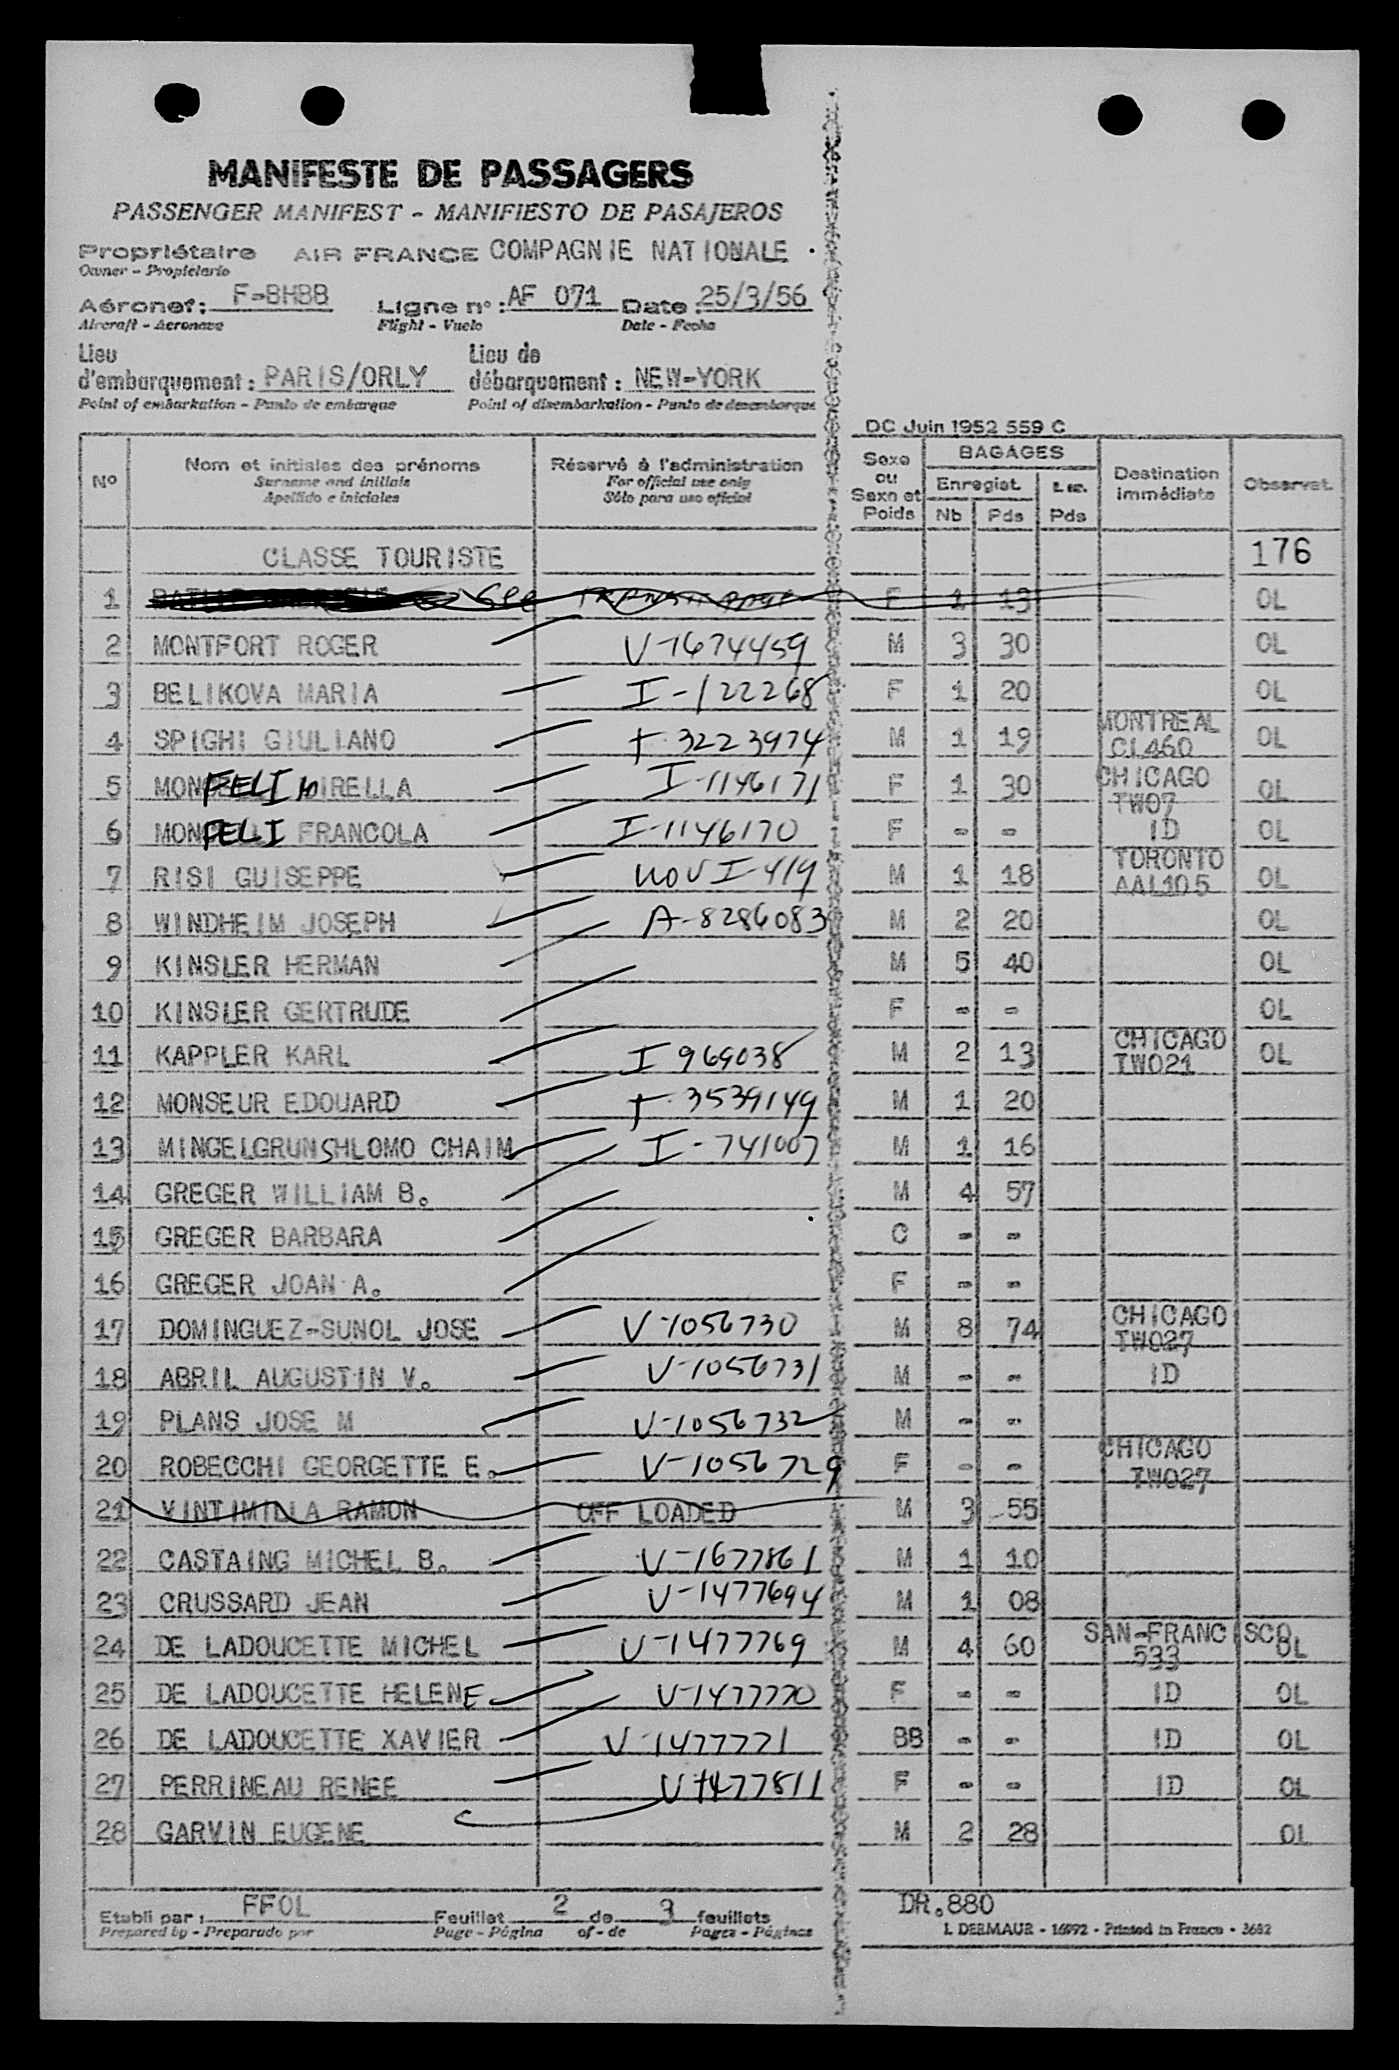 MANIFESTE DE PASSAGERS
PASSENGER MANIFEST - MANIFIESTO DE PASAJEROS
Propriétaire AIR FRANCE COMPAGNIE NATIONALE
Owner - Propietario
Aéronef: F-BHBB Ligne n°: AF 071 Date: 25/3/56
Aircraft - Aeronave Flight - Vuelo Date - Fecha
Lieu Lieu de
d'embarquement: PARIS/ORLY débarquement: NEW-YORK
Point of embarkation - Punto de embarque Point of disembarkation - Punto de desembarque
DC Juin 1952 559 C
N° Nom et initiales des prénoms Réservé à l'administration Sexe ou Sexe et Poids BAGAGES Destination immédiate Observat.
Surname and initials For official use only Enregist. Lie.
Apellido e iniciales Sólo para uso oficial Nb Pds Pds
CLASSE TOURISTE 176
1 See F 1 13 OL
2 MONTFORT ROGER V-1674459 M 3 30 OL
3 BELIKOVA MARIA I-122268 F 1 20 OL
4 SPIGHI GIULIANO T-3223974 M 1 19 MONTREAL CL460 OL
5 MONFELI MIRELLA I-1146171 F 1 30 CHICAGO TW07 OL
6 MONFELI FRANCOLA I-1146170 F - - ID OL
7 RISI GUISEPPE NOV I-419 M 1 18 TORONTO AAL105 OL
8 WINDHEIM JOSEPH A-8286083 M 2 20 OL
9 KINSLER HERMAN M 5 40 OL
10 KINSLER GERTRUDE F - - OL
11 KAPPLER KARL I 969038 M 2 13 CHICAGO TW021 OL
12 MONSEUR EDOUARD T-3539149 M 1 20
13 MINGELGRUN SHLOMO CHAIM I-741007 M 1 16
14 GREGER WILLIAM B. M 4 57
15 GREGER BARBARA C - -
16 GREGER JOAN A. F - -
17 DOMINGUEZ-SUNOL JOSE V-1056730 M 8 74 CHICAGO TW027
18 ABRIL AUGUSTIN V. V-1056731 M - - ID
19 PLANS JOSE M V-1056732 M - -
20 ROBECCHI GEORGETTE E. V-1056729 F - - CHICAGO TW027
21 VINTIMILLA RAMON OFF LOADED M 3 55
22 CASTAING MICHEL B. V-1677861 M 1 10
23 CRUSSARD JEAN V-1477694 M 1 08
24 DE LADOUCETTE MICHEL V-1477769 M 4 60 SAN-FRANCISCO 533 OL
25 DE LADOUCETTE HELENE V-1477770 F - - ID OL
26 DE LADOUCETTE XAVIER V-1477771 BB - - ID OL
27 PERRINEAU RENEE V-1477811 F - - ID OL
28 GARVIN EUGENE M 2 28 OL
Etabli par: FFOL Feuillet 2 de 3 feuillets DR.880
Prepared by - Preparado por Page - Página of - de Pages - Páginas L DERMAUR - 16992 - Printed in France - 3682